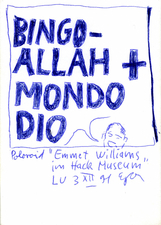 BINGO-
ALLAH +
MONDO
DIO
Polaroid "Emmet Williams
im Hack Museum"
LU 3 XII 91